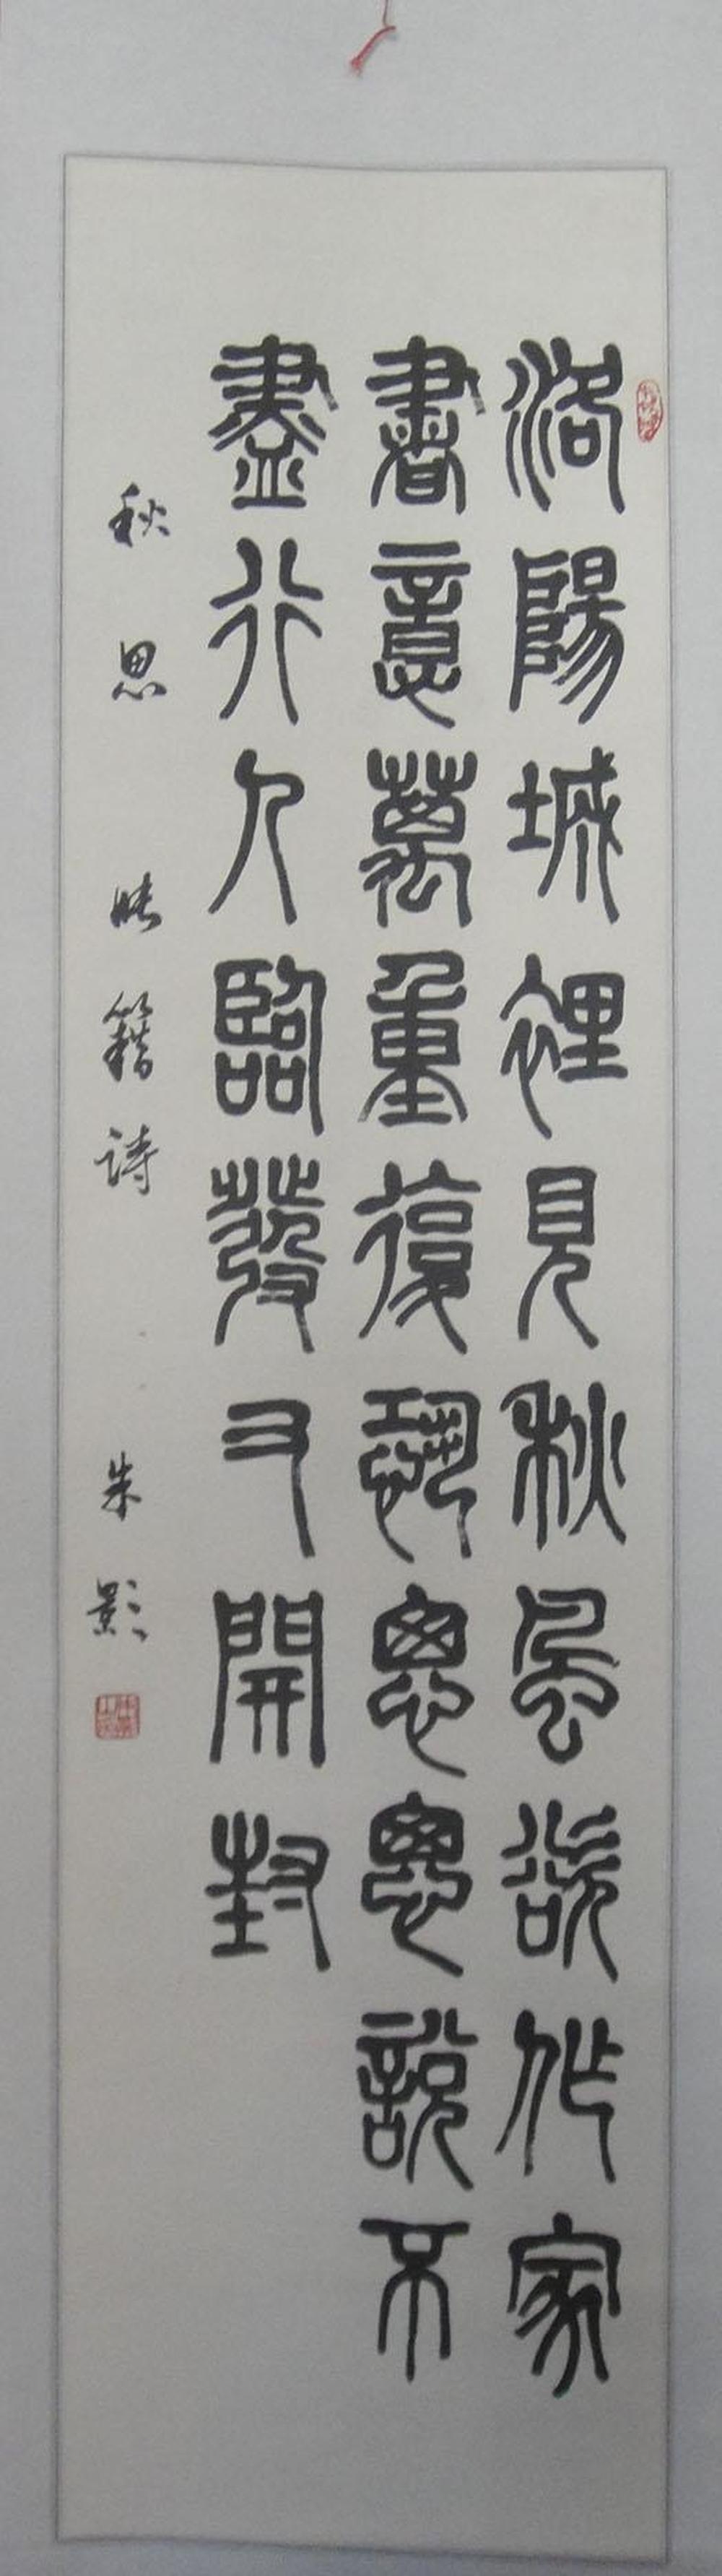 洛陽城裡見秋風欲作家
書意萬重復恐悤悤說不
盡行人臨發又開封
秋思 張籍詩 朱影